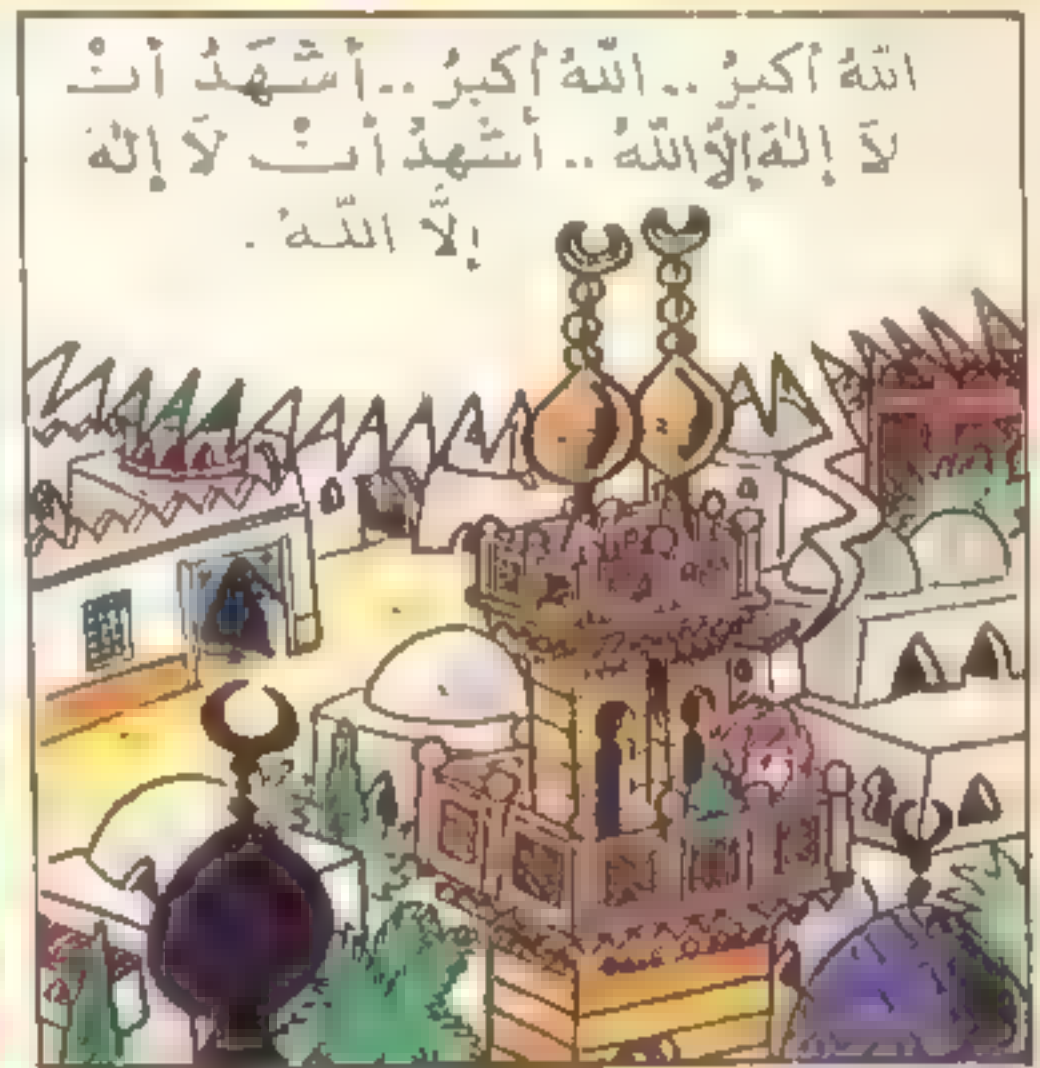 اللهُ أكبرُ .. اللهُ أكبرُ .. أشْهَدُ أنْ
لاَ إلهَ إلاَّ اللهُ .. أشهدُ أنْ لاَ إلهَ
إلاَّ اللهُ .